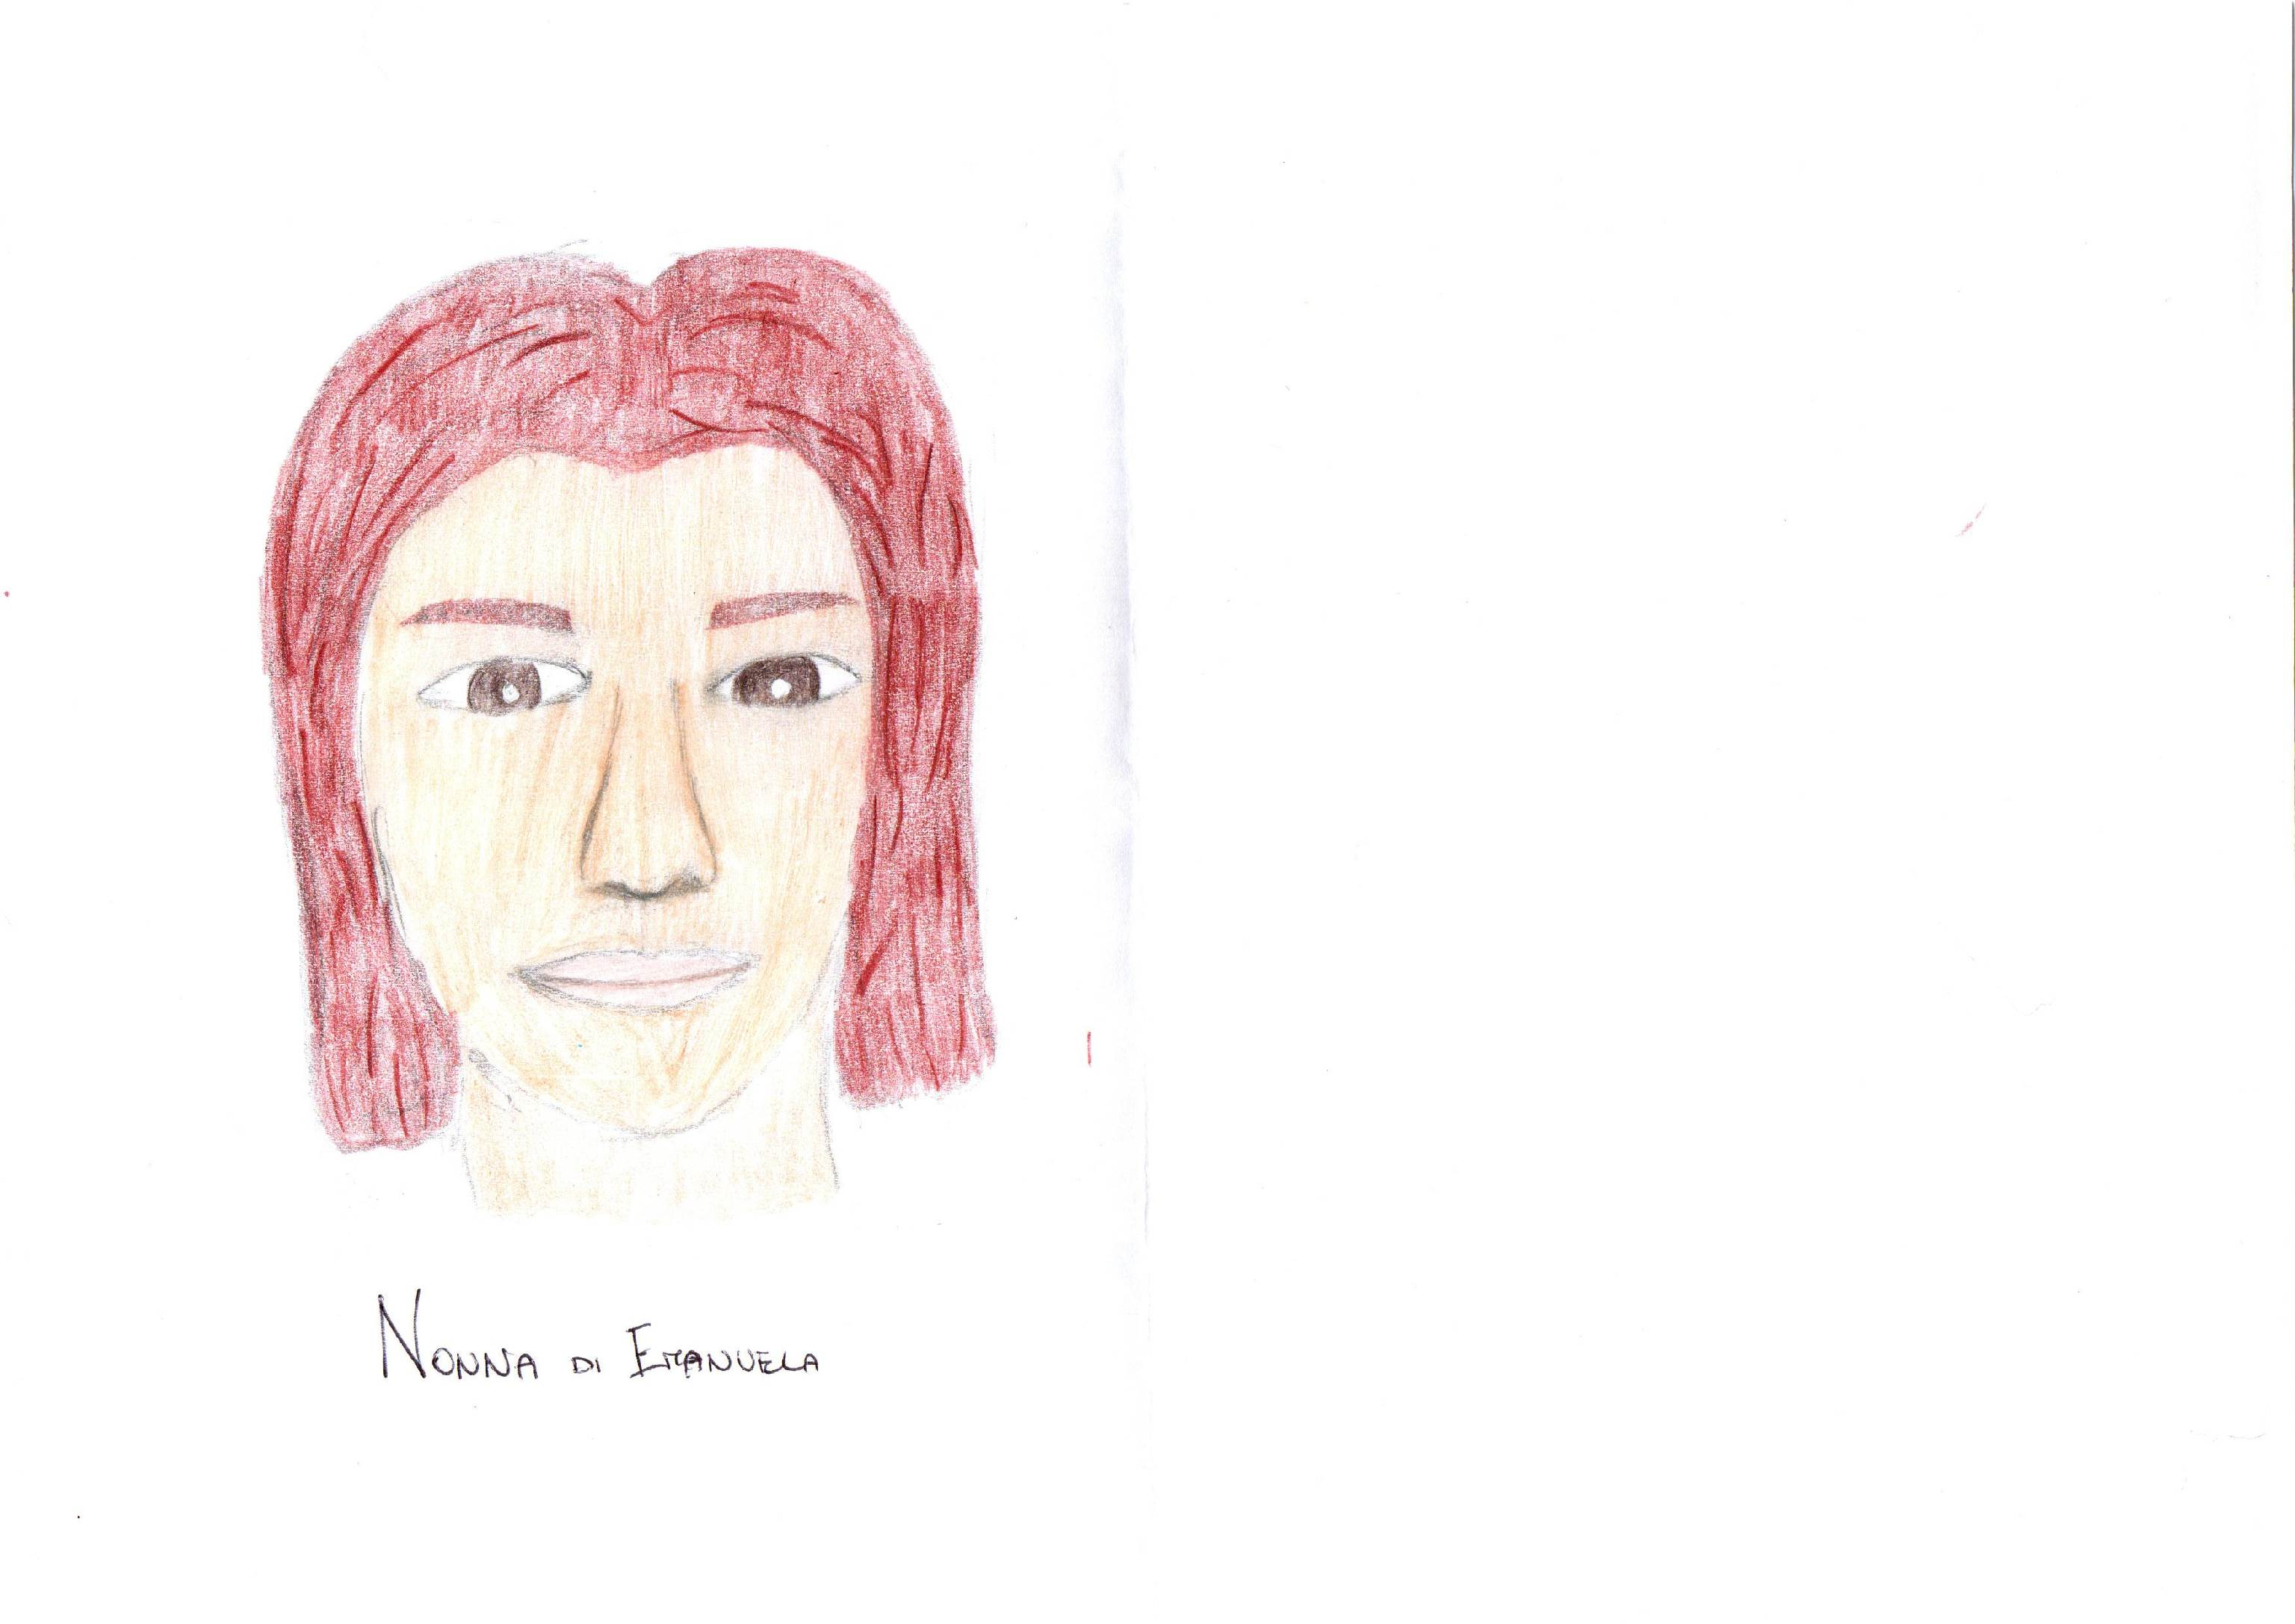 NONNA DI EMANUELA